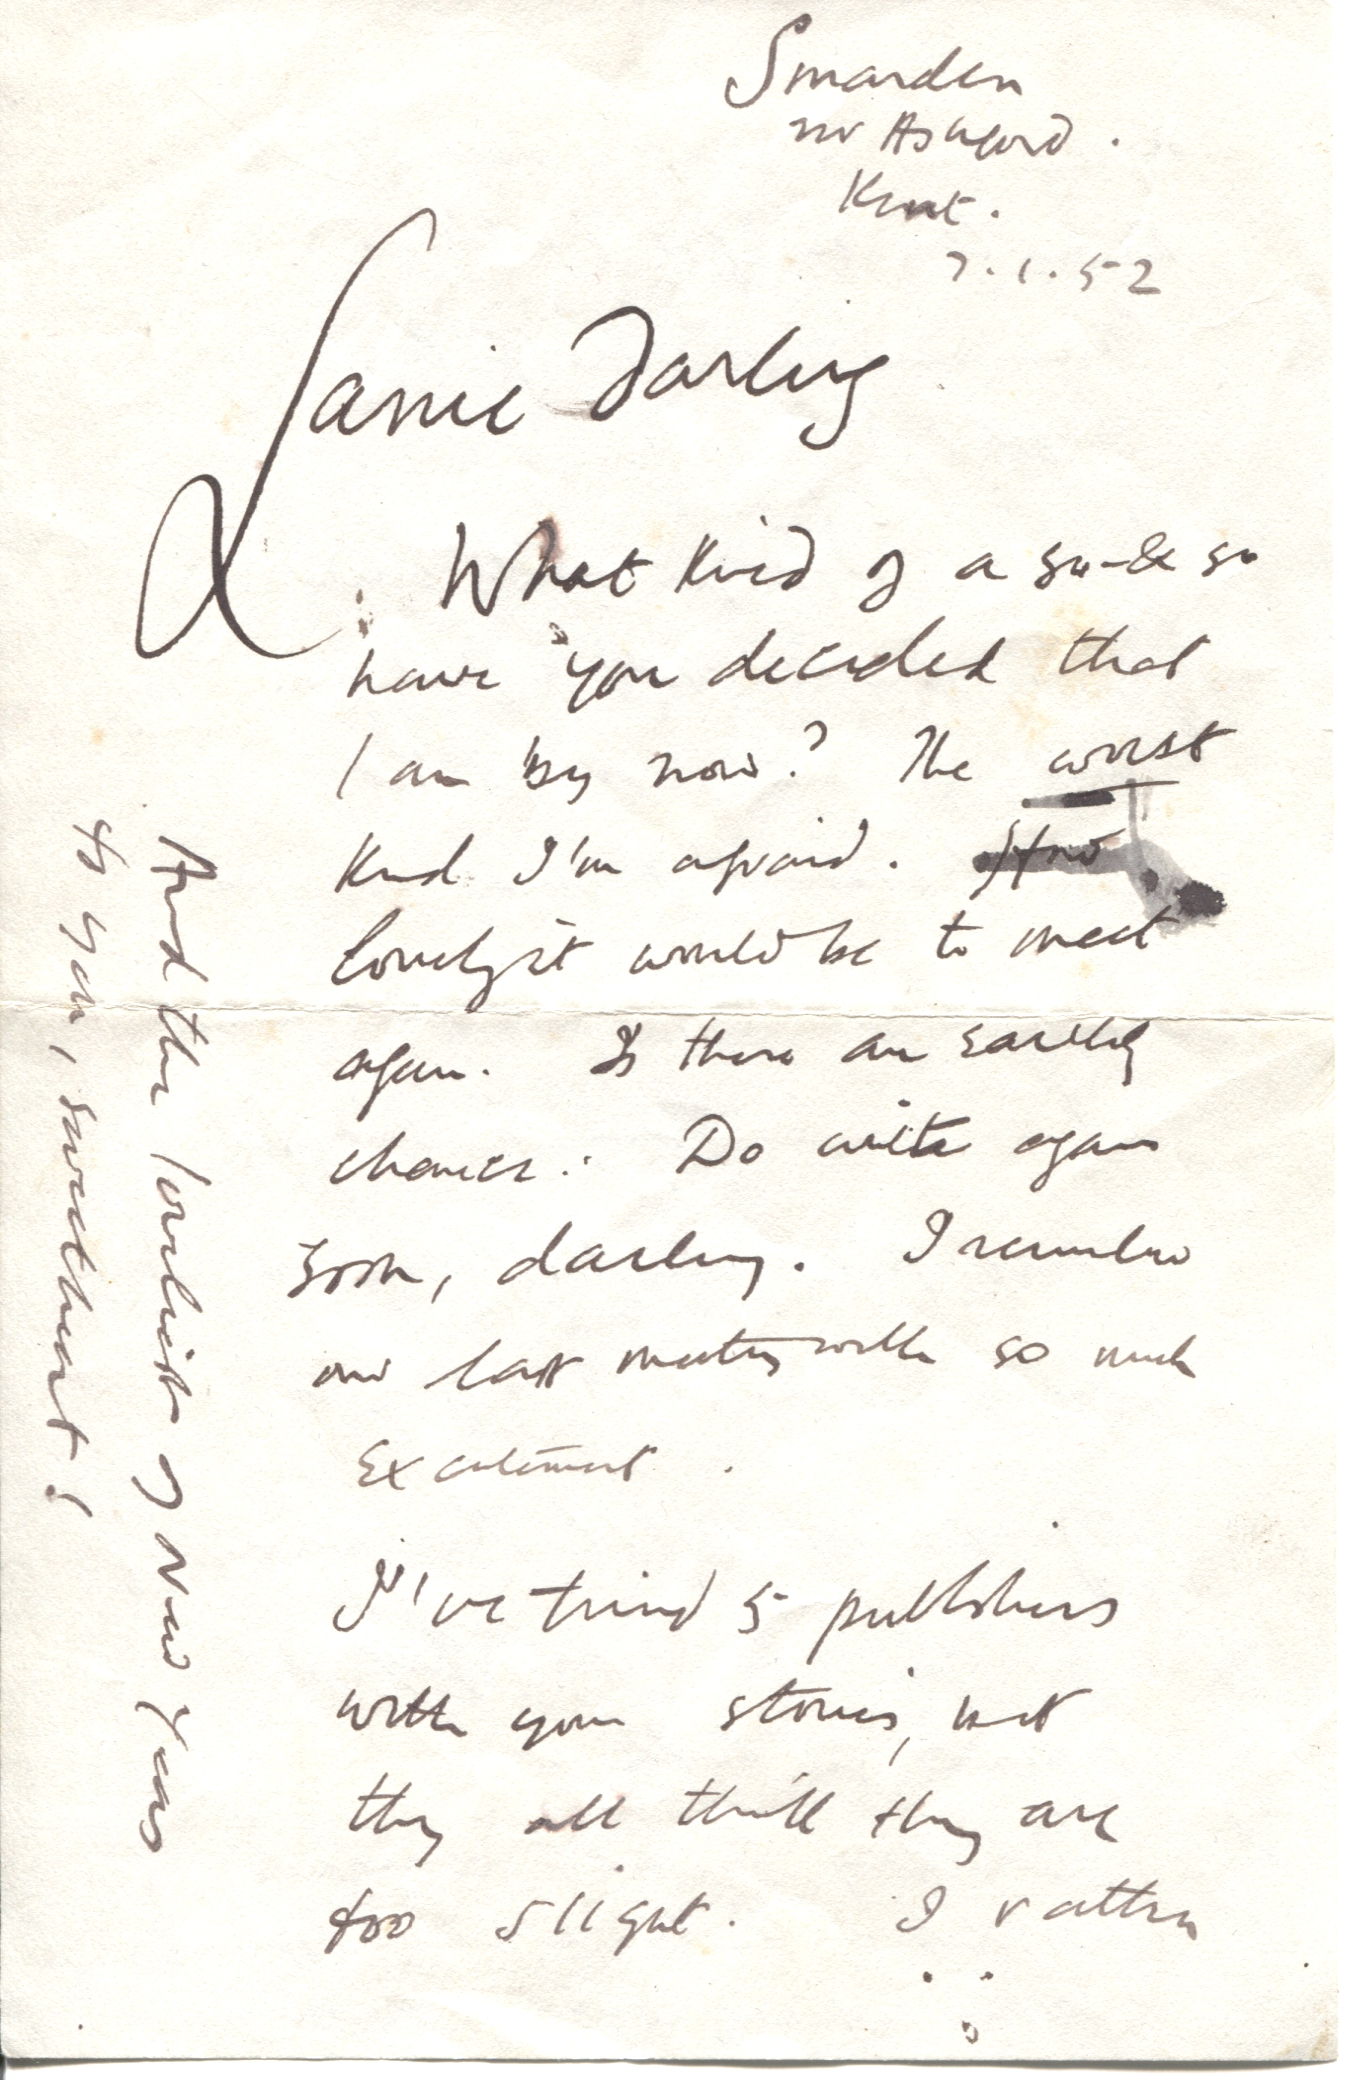 Smarden
nr Ashford.
Kent.
7.1.52
Darling
What kind of a so-& so
have you decided that
I am by now? The worst
kind I'm afraid. How
lovely it would be to meet
again. Is there an earthly
chance? Do write again
soon, darling. I remember
our last meeting with so much
excitement.
I've tried 5 publishers
with your stories, but
they all think they are
too slight. I rather
And the loveliest of New Years
to you, sweetheart!